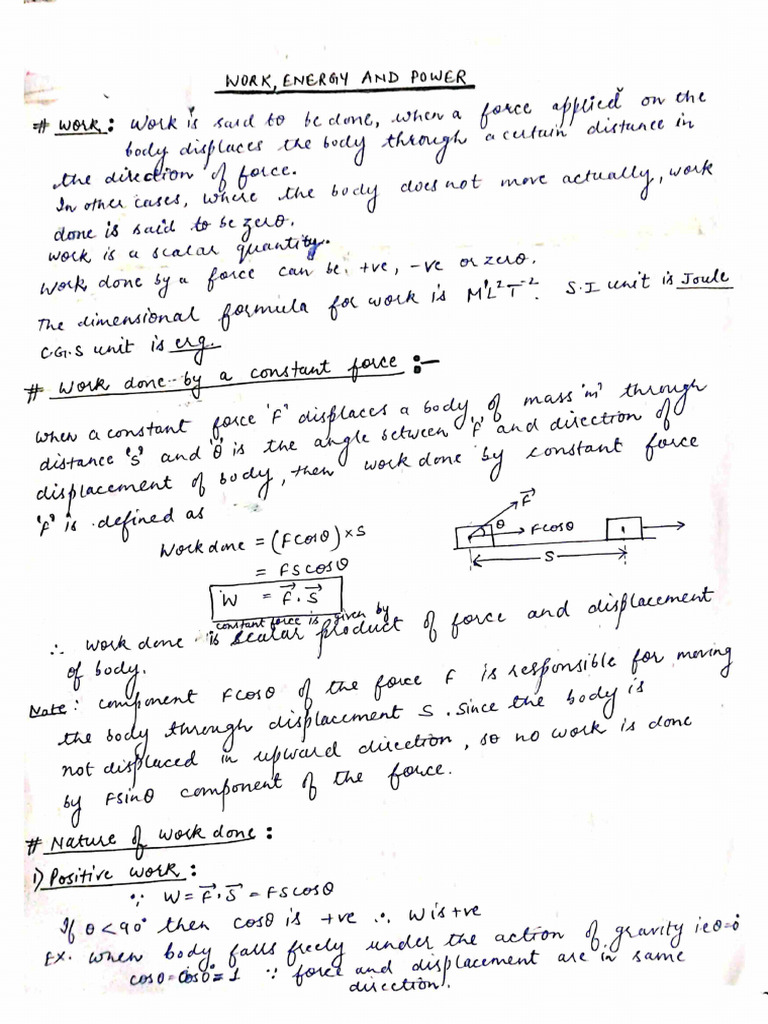 WORK, ENERGY AND POWER
# Work: Work is said to be done, when a force applied on the
body displaces the body through a certain distance in
the direction of force.
In other cases, where the body does not move actually, work
done is said to be zero.
Work is a scalar quantity.
Work done by a force can be +ve, -ve or zero.
The dimensional formula for work is M¹L²T⁻². S.I unit is Joule
C.G.S unit is erg.
# Work done by a constant force :-
When a constant force 'F' displaces a body of mass 'm' through
distance 'S' and 'θ' is the angle between 'F' and direction of
displacement of body, then work done by constant force
'F' is defined as
Work done = (Fcosθ) × S
= FScosθ
W = F⃗ . S⃗
F⃗
θ
Fcosθ
S
constant force is given by
∴ Work done is scalar product of force and displacement
of body.
Note: Component Fcosθ of the force F is responsible for moving
the body through displacement S. Since the body is
not displaced in upward direction, so no work is done
by Fsinθ component of the force.
# Nature of work done :
i) Positive work :
∵ W = F⃗ . S⃗ = FScosθ
If θ < 90° then cosθ is +ve ∴ W is +ve
Ex. when body falls freely under the action of gravity i.e θ=0°
cosθ = cos0° = 1 ∵ force and displacement are in same
direction.